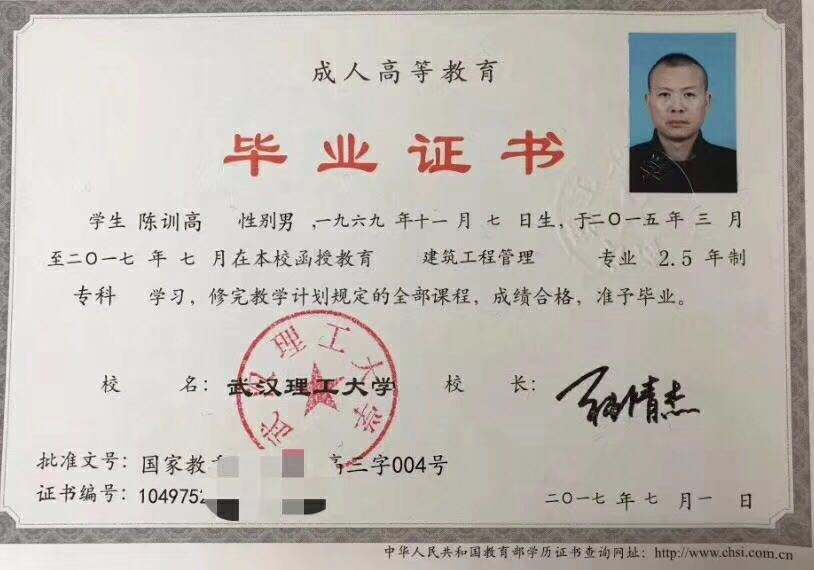 成人高等教育
毕业证书
学生 陈训高 性别男 ,一九六九 年十一 月 七 日生，于二〇一五年 三 月
至二〇一七 年 七 月在本校函授教育 建筑工程管理 专业 2.5 年制
专科 学习，修完教学计划规定的全部课程，成绩合格，准予毕业。
校 名：武汉理工大学 校 长：
武汉理工大学
批准文号：国家教 高三字004号
证书编号：1049752
二〇一七 年 七 月 一 日
中华人民共和国教育部学历证书查询网址：http://www.chsi.com.cn